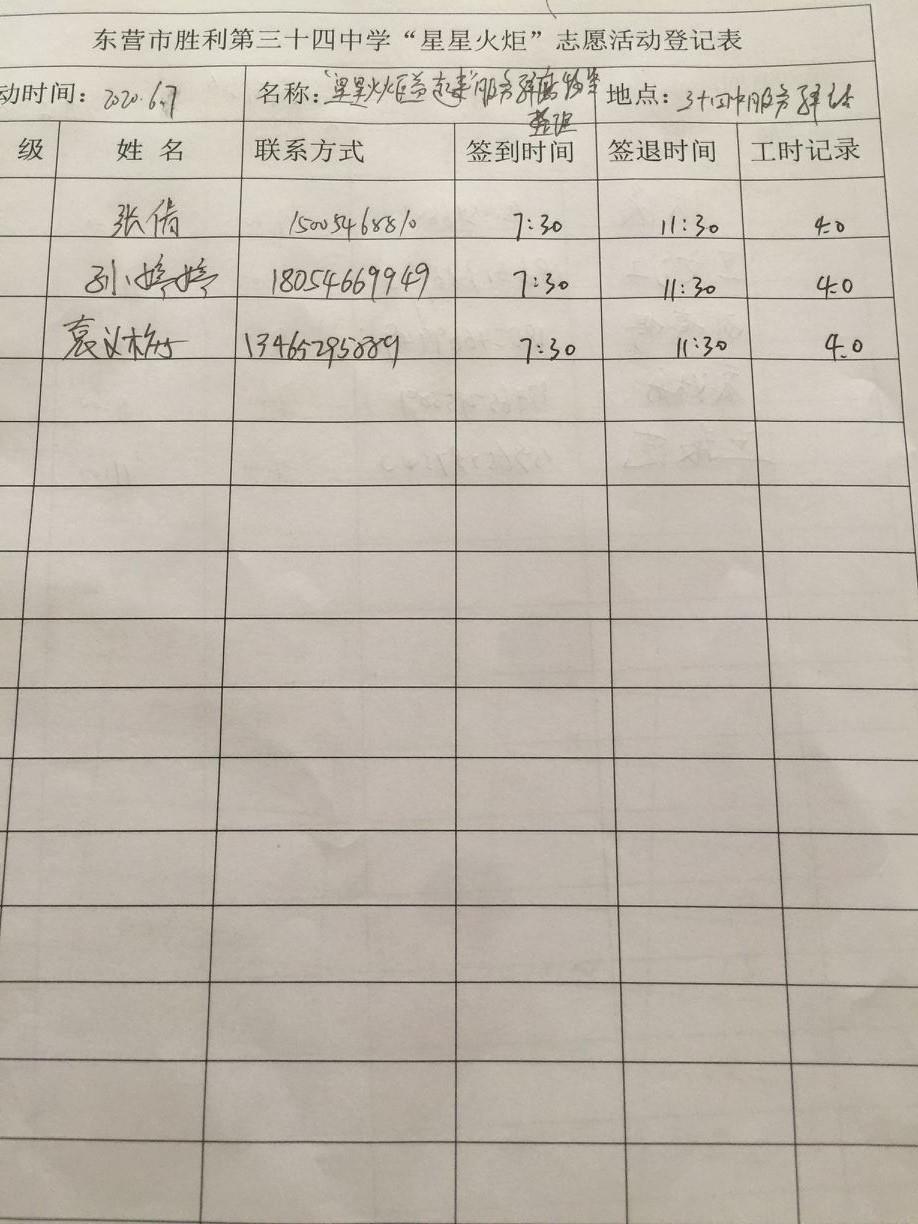 东营市胜利第三十四中学“星星火炬”志愿活动登记表
动时间：2020.6.7 名称：“星星火炬益起来”服务驿站 整理 地点：三十四中服务驿站
级 姓名 联系方式 签到时间 签退时间 工时记录
张倩 15005468810 7:30 11:30 4.0
孙婷婷 18054669949 7:30 11:30 4.0
袁义 13465295889 7:30 11:30 4.0